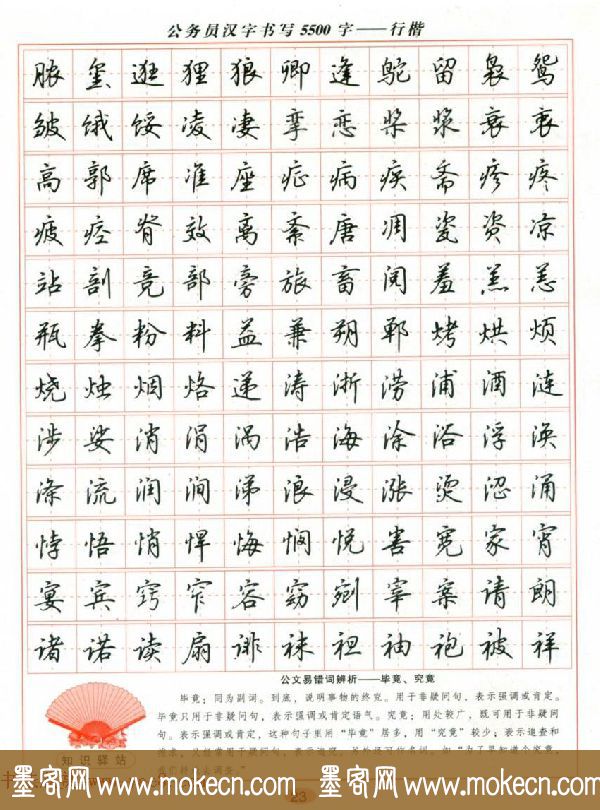 公务员汉字书写5500字——行楷
脓 玺 逛 狸 狼 卿 逢 鸵 留 袅 鸳
皱 饿 馁 凌 凄 挛 恋 桨 浆 衰 衷
高 郭 席 准 座 症 病 疾 斋 疹 疼
疲 痉 脊 效 离 紊 唐 凋 瓷 资 凉
站 剖 竞 部 旁 旅 畜 阅 羞 羔 恙
瓶 拳 粉 料 益 兼 朔 郸 烤 烘 烦
烧 烛 烟 烙 递 涛 浙 涝 浦 酒 涟
涉 娑 消 涓 涡 浩 海 涂 浴 浮 涣
涤 流 润 涧 涕 浪 浸 涨 烫 涩 涌
悖 悟 悄 悍 悔 悯 悦 害 宽 家 宵
宴 宾 窍 窄 容 窈 剜 宰 案 请 朗
诸 诺 读 扇 诽 袜 袒 袖 袍 被 祥
公文易错词辨析——毕竟、究竟
毕竟：同为副词。到底，说明事物的终究。用于非疑问句，表示强调或肯定。
毕竟只用于非疑问句，表示强调或肯定语气。究竟：用处较广，既可用于非疑问
句。表示强调或肯定，这种句子里用“毕竟”居多，用“究竟”较少；表示追查和
知识驿站
墨客网 www.mokecn.com 墨客网 www.mokecn.com
23